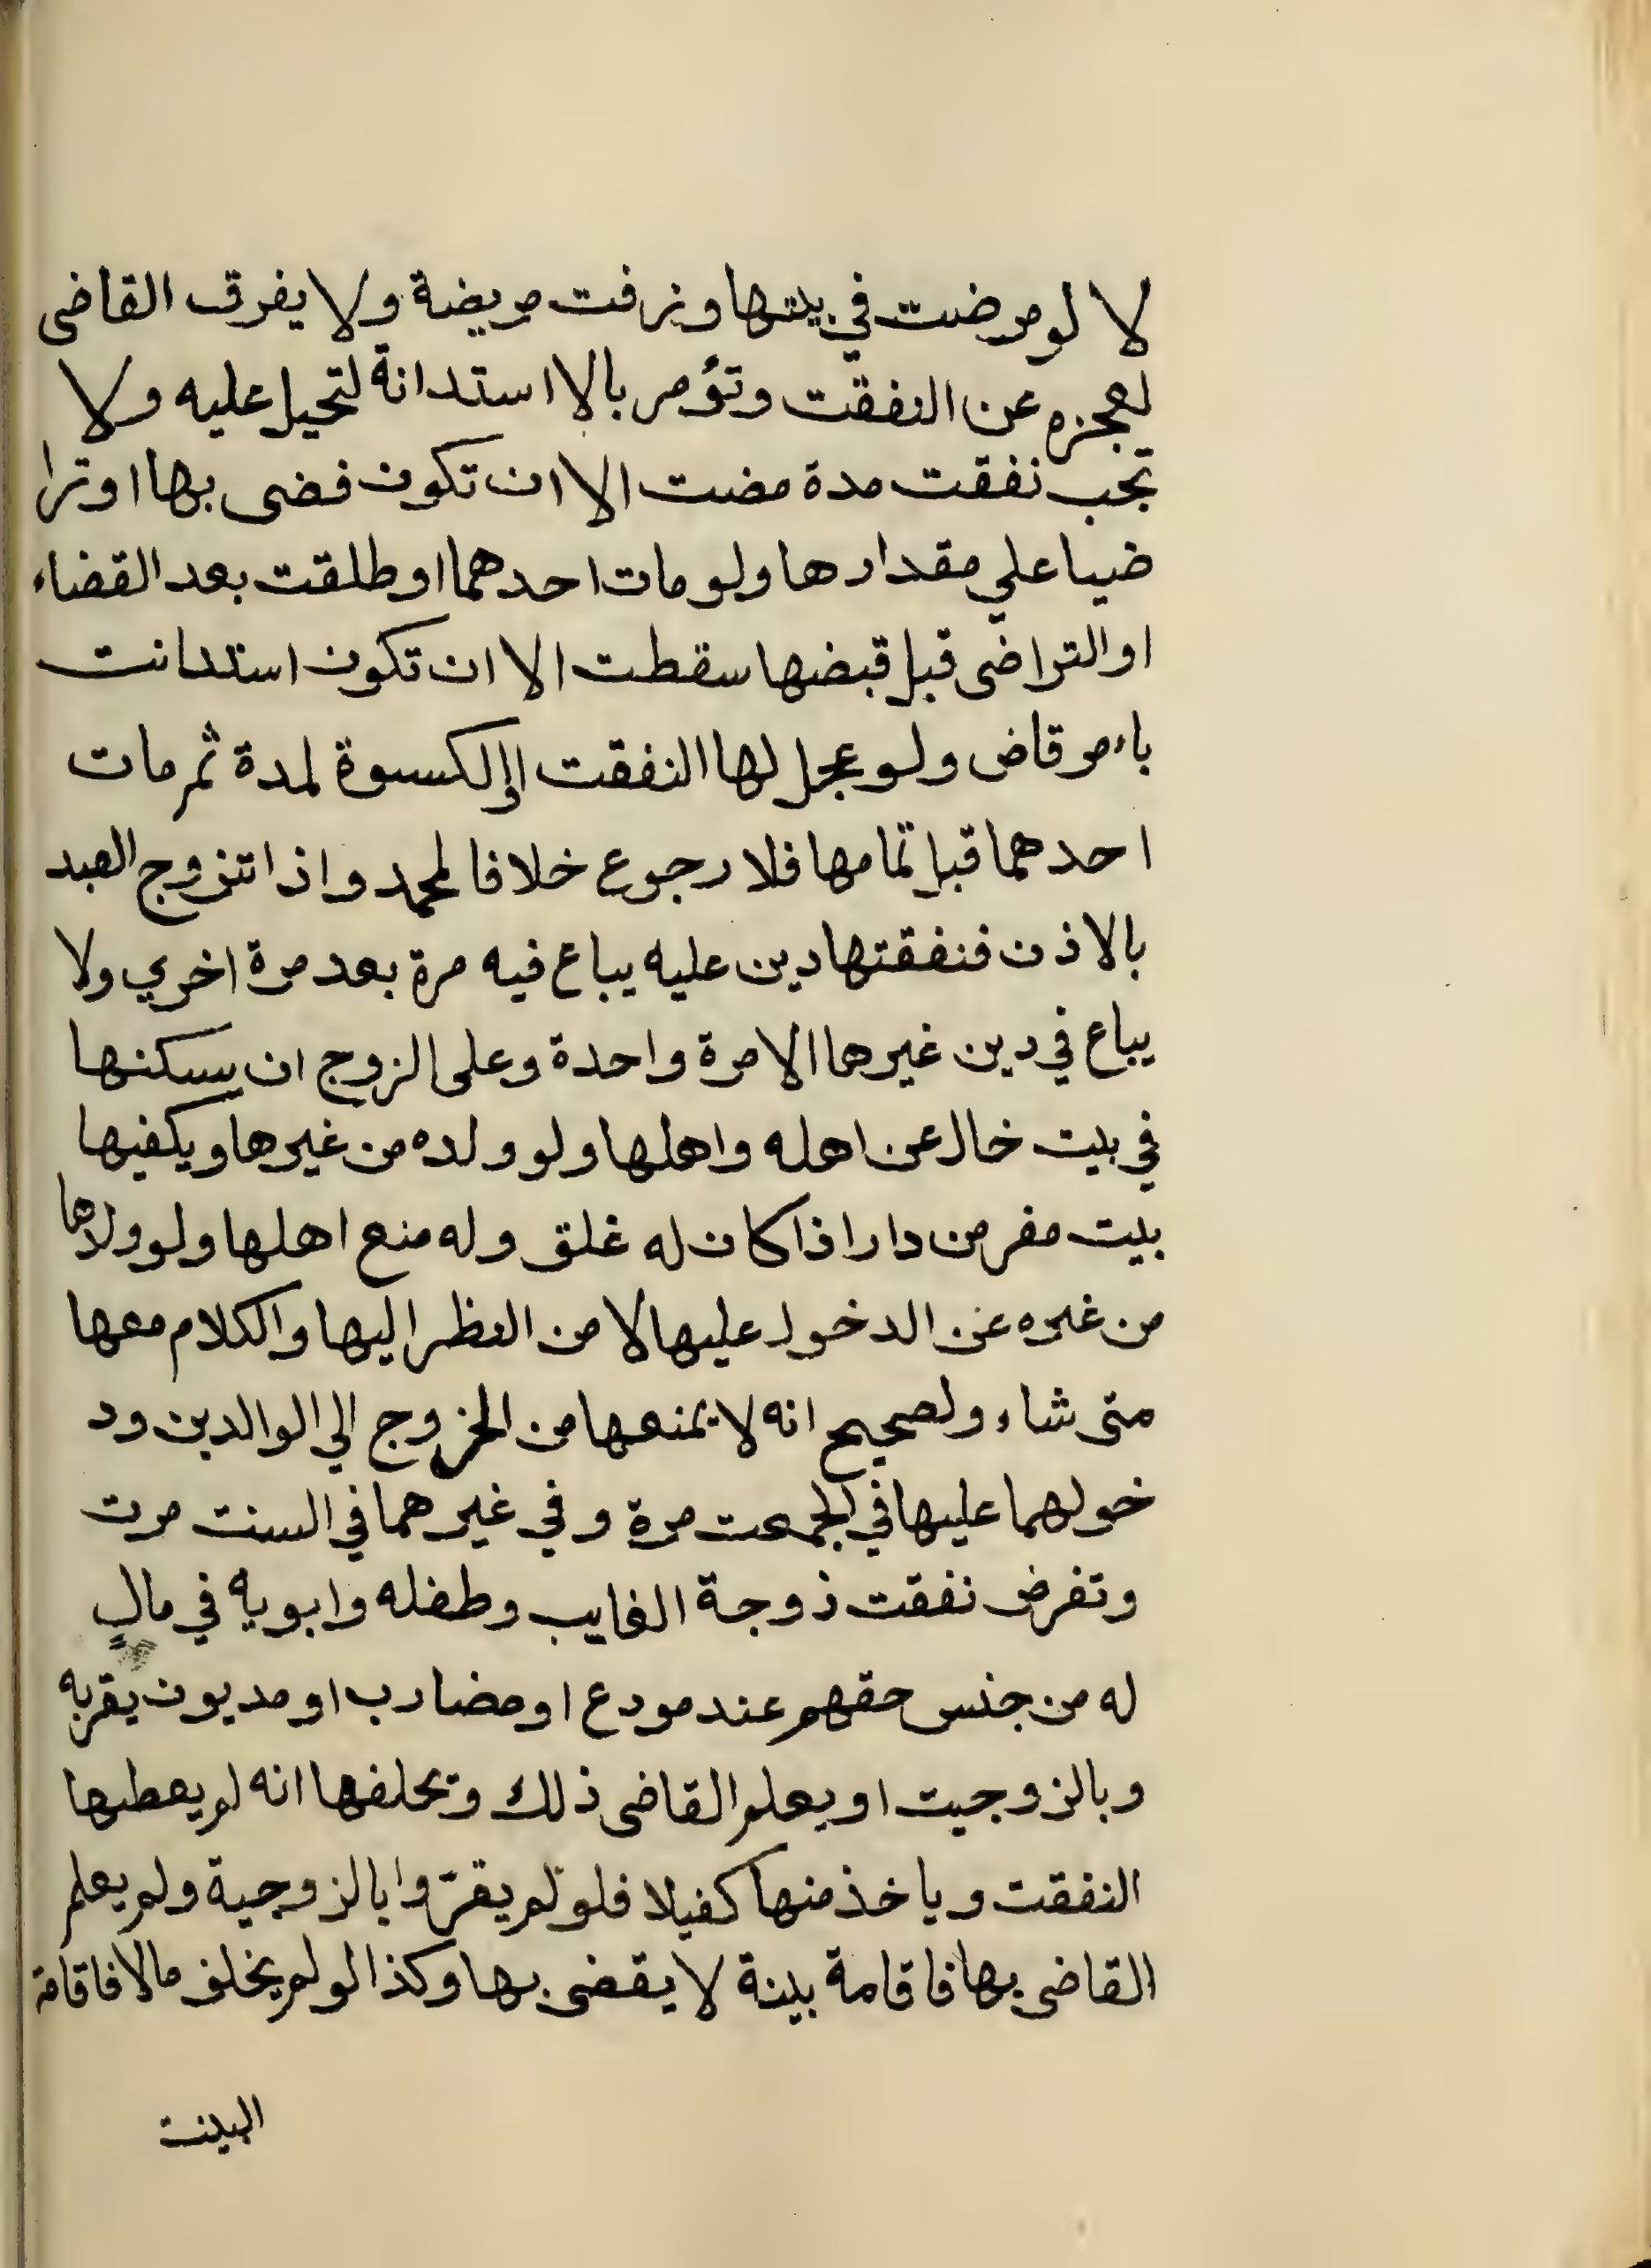 لا لو مرضت في بيتها وزفت مريضة ولا يفرق القاضى
لعجزه عن النفقت وتؤمر بالا استدانة لتحيل عليه ولا
تجب نفقت مدة مضت الا ان تكون قضى بها او ترا
ضيا علي مقدارها ولو مات احدهما او طلقت بعد القضاء
او التراضى قبل قبضها سقطت الا ان تكون استدانت
باءمر قاض ولو عجل لها النفقت االكسوة لمدة ثم مات
احدهما قبل تمامها فلا رجوع خلافا لمحمد واذا تزوج العبد
بالاذن فنفقتها دين عليه يباع فيه مرة بعد مرة اخري ولا
يباع في دين غيرها الا مرة واحدة وعلى الزوج ان يسكنها
في بيت خال عن اهله واهلها ولو ولده من غيرها ويكفيها
بيت مفر من دار اذا كان له غلق وله منع اهلها ولو ولدها
من غيره عن الدخول عليها لا من النظر اليها والكلام معها
متى شاء ولصحيح انه لا يمنعها من الخروج الي الوالدين ود
خولهما عليها في الجمعت مرة وفي غيرهما في السنت مرت
وتفرض نفقت زوجة الغايب وطفله وابويه في مالٍ
له من جنس حقهم عند مودع او مضارب او مديون يقر به
وبالزوجيت او يعلم القاضى ذلك وتحلفها انه لم يعطها
النفقت وياخذ منها كفيلا فلو لم يقرّوا بالزوجية ولم يعلم
القاضى بها فاقامة بينة لا يقضى بها وكذا لو لم يخلف مالا فاقامة
البينت